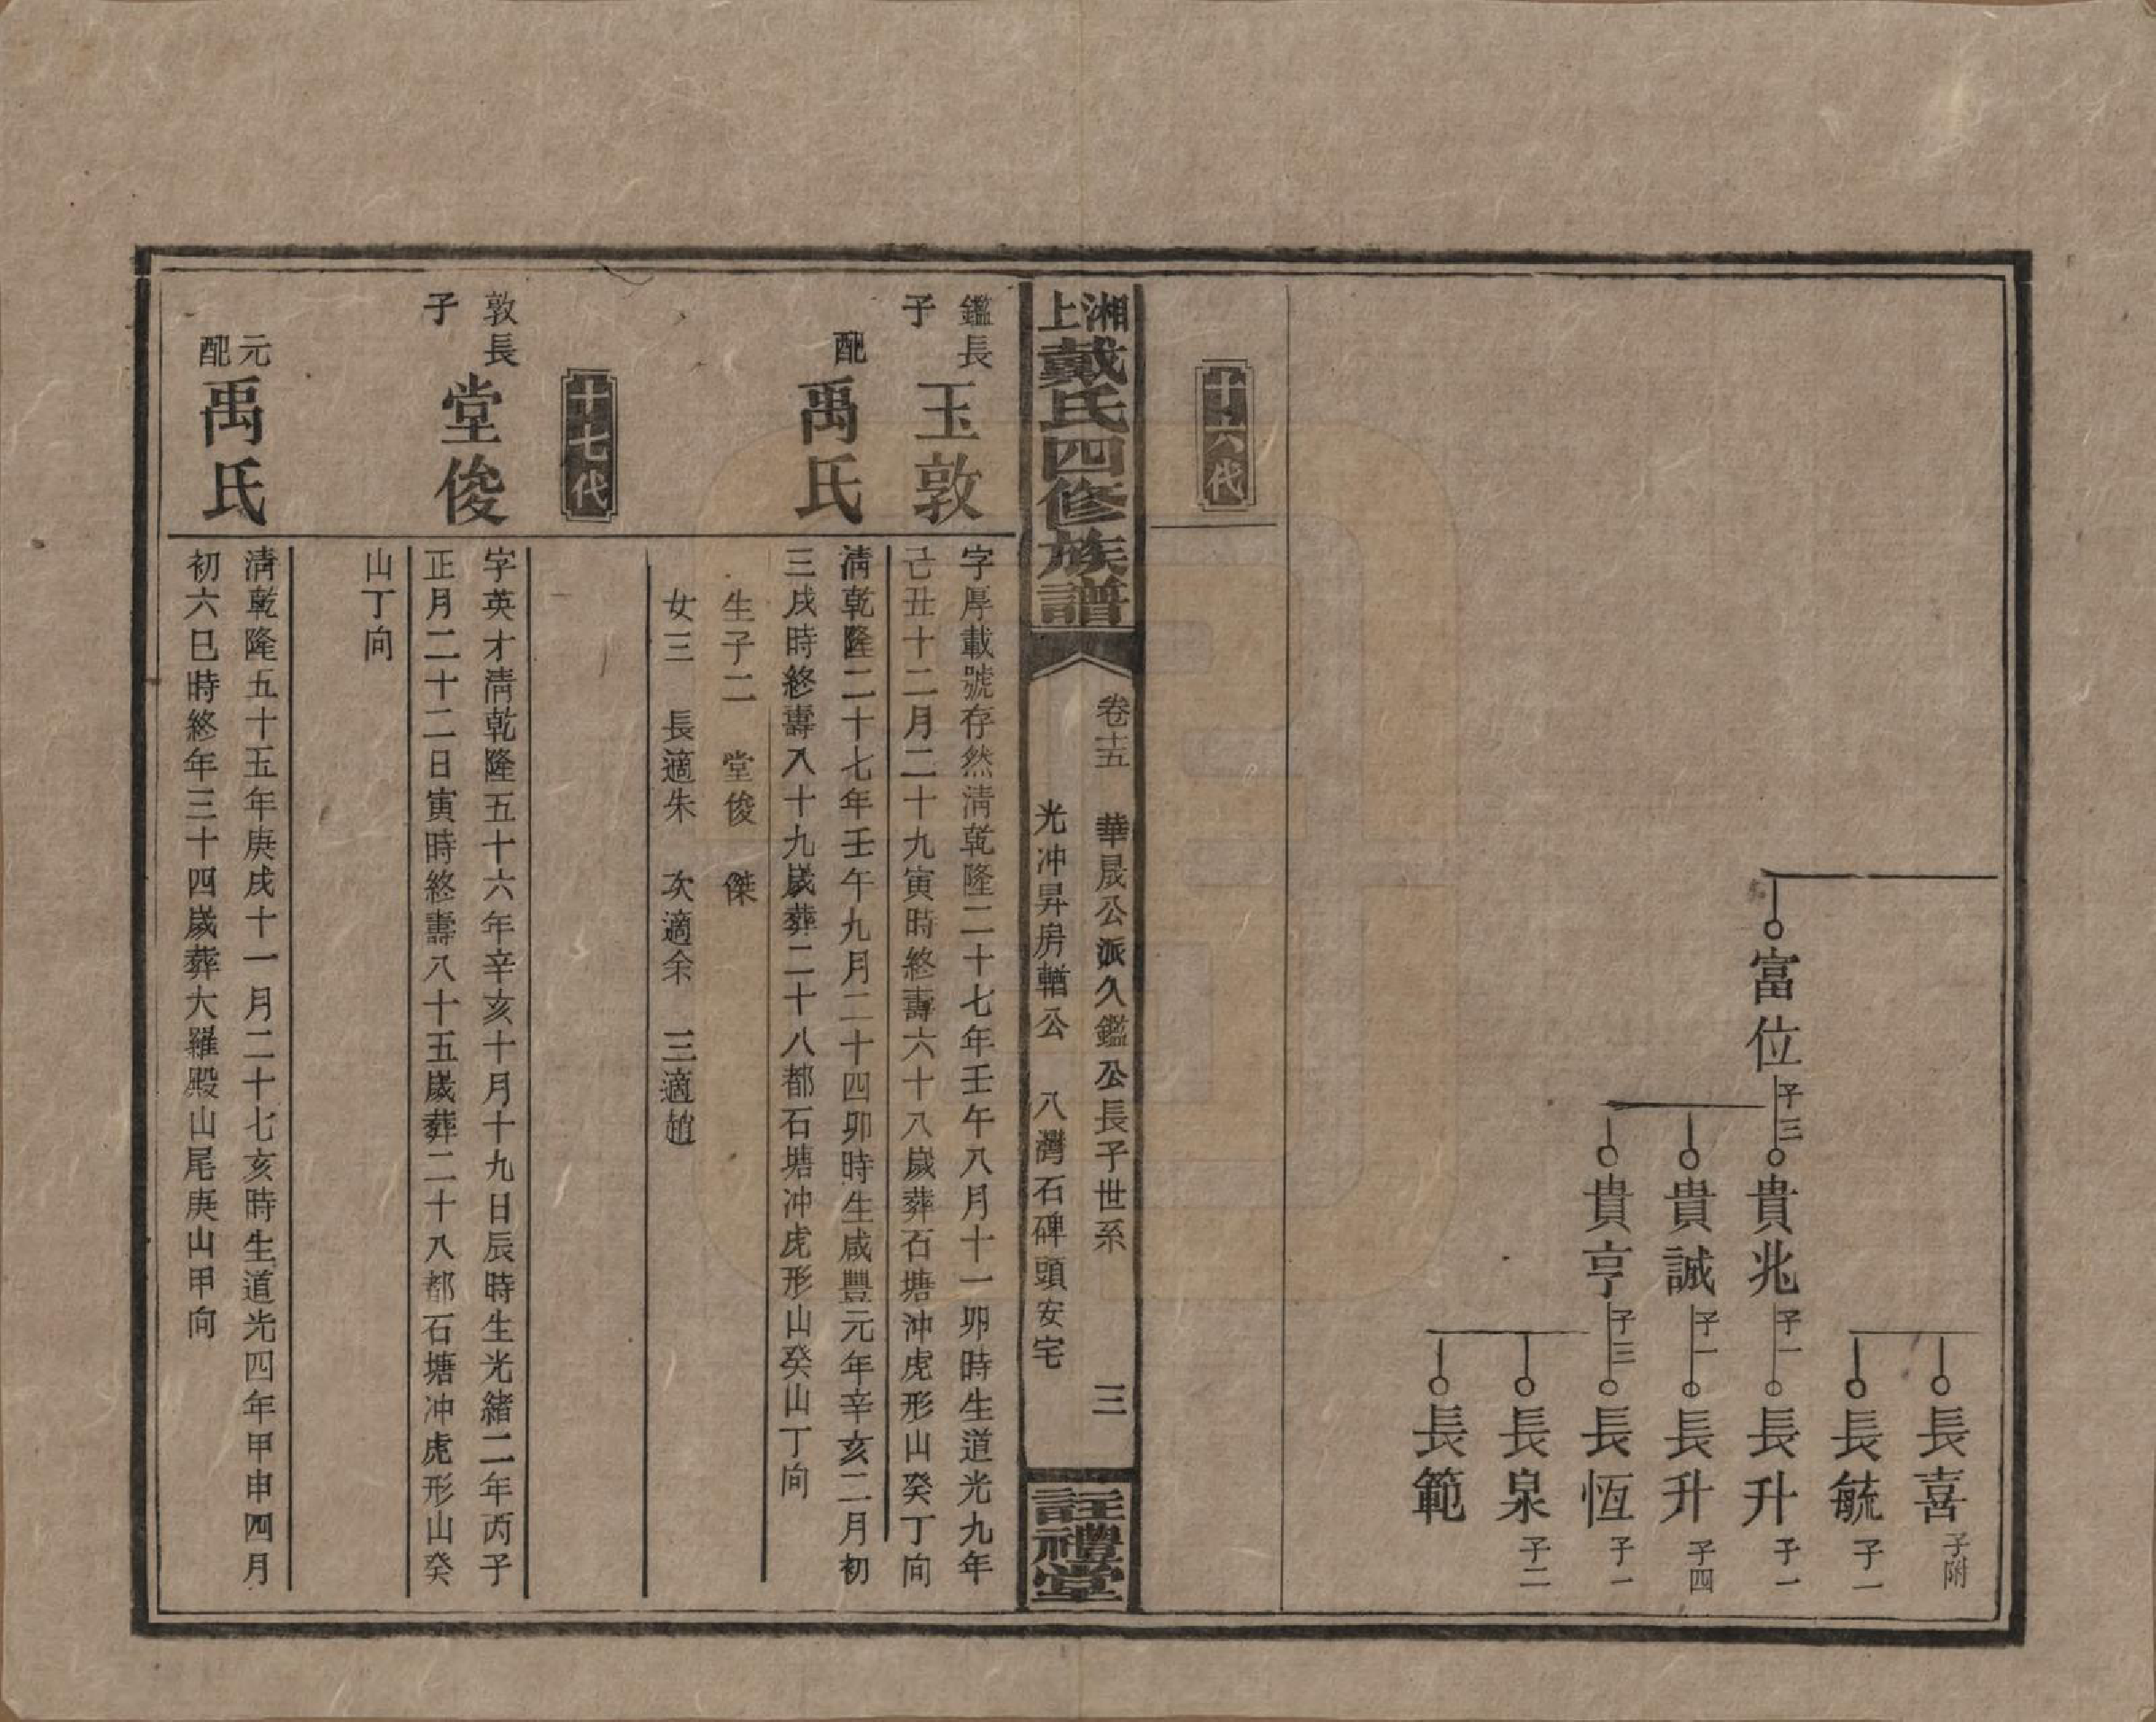 富位 子三
貴兆 子一
貴誠 子一
貴亨 子三
長喜 子附
長毓 子一
長升 子一
長升 子四
長恆 子一
長泉 子二
長範
十六代
湘上戴氏四修族譜
卷十五 華晟公派久鑑公長子世系 三
光冲昇房輶公 八灣石碑頭安宅
註禮堂
鑑長子 玉敦
字厚載號存然清乾隆二十七年壬午八月十一卯時生道光九年
己丑十二月二十九寅時終壽六十八歲葬石塘冲虎形山癸丁向
配 禹氏
清乾隆二十七年壬午九月二十四卯時生咸豐元年辛亥二月初
三戌時終壽八十九歲葬二十八都石塘冲虎形山癸山丁向
生子二 堂俊 傑
女三 長適朱 次適余 三適趙
十七代
敦長子 堂俊
字英才清乾隆五十六年辛亥十月十九日辰時生光緒二年丙子
正月二十二日寅時終壽八十五歲葬二十八都石塘冲虎形山癸
山丁向
元配 禹氏
清乾隆五十五年庚戌十一月二十七亥時生道光四年甲申四月
初六巳時終年三十四歲葬大羅殿山尾庚山甲向